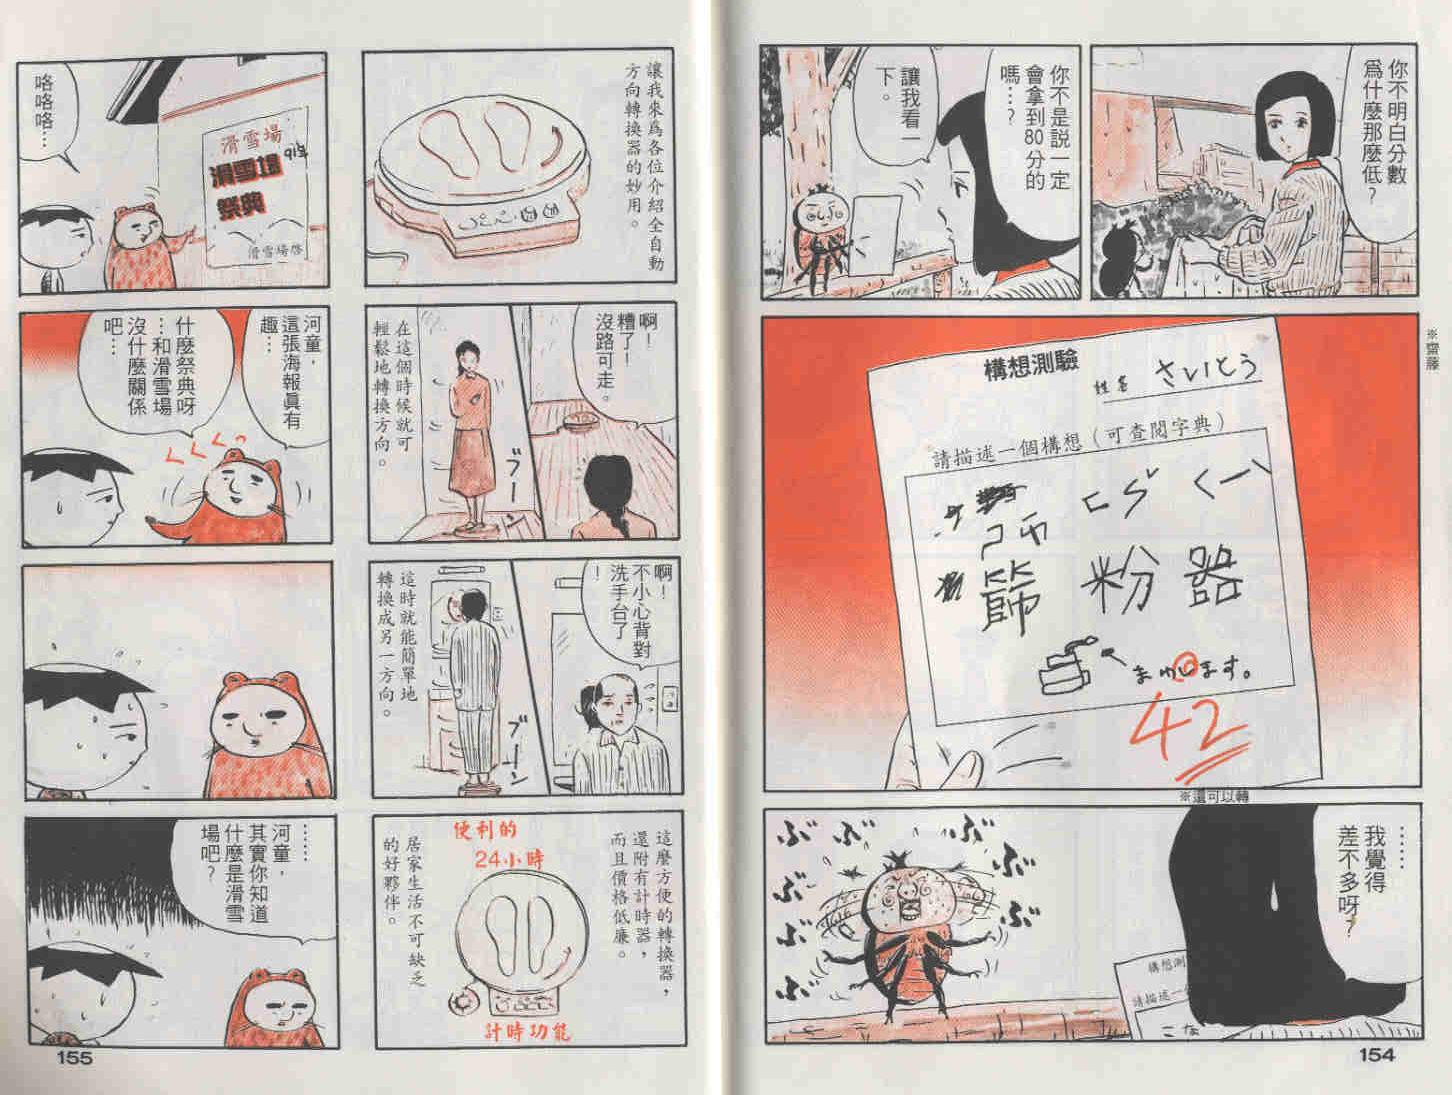 你不明白分數
爲什麼那麼低?
你不是説一定
會拿到80分的
嗎…?
讓我看一
下。
※齋藤
構想測驗
姓名 さいとう
請描述一個構想(可查閱字典)
篩粉器
まわします。
42
※還可以轉
……
我覺得
差不多呀?
ぶ゛
ぶ゛
ぶ゛
ぶ゛
ぶ゛
ぶ゛
ぶ゛
ぶ゛
構想測
請描述一
こな
154
讓我來爲各位介紹全自動
方向轉換器的妙用。
啊!
糟了!
沒路可走。
ブーン
在這個時候就可
輕鬆地轉換方向。
啊!
不小心背對
洗手台了
!
ブーン
這時就能簡單地
轉換成另一方向。
這麼方便的轉換器,
還附有計時器,
而且價格低廉。
便利的
24小時
計時功能
居家生活不可缺乏
的好夥伴。
滑雪場
91年
滑雪場
祭典
滑雪場啓
咯咯咯…
河童,
這張海報眞有
趣…
くくくっ
什麼祭典呀
…和滑雪場
沒什麼關係
吧…
……
河童,
其實你知道
什麼是滑雪
場吧?
155